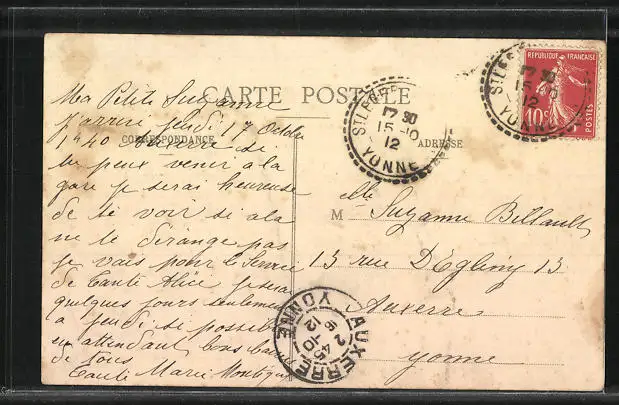 CARTE POSTALE
CORRESPONDANCE
ADRESSE
Ma Petite Suzanne
J'arrive jeudi 17 Octobre
1h40 si
tu peux venir a la
gare je serai heureuse
de te voir si cela
ne te dérange pas
je vais pour le Service
de Tante Alice je serai
quelques jours seulement
a jeudi si possible
en attendant bons baisers
de tous
Tante Marie
Melle Suzanne Billault
13 rue D'Egleny 13
Auxerre
yonne
ST LEGER
17 30
15-10
12
YONNE
ST LEGER
17 30
15-10
12
YONNE
REPUBLIQUE FRANÇAISE
10c
POSTES
AUXERRE
2 45
16-10
12
YONNE